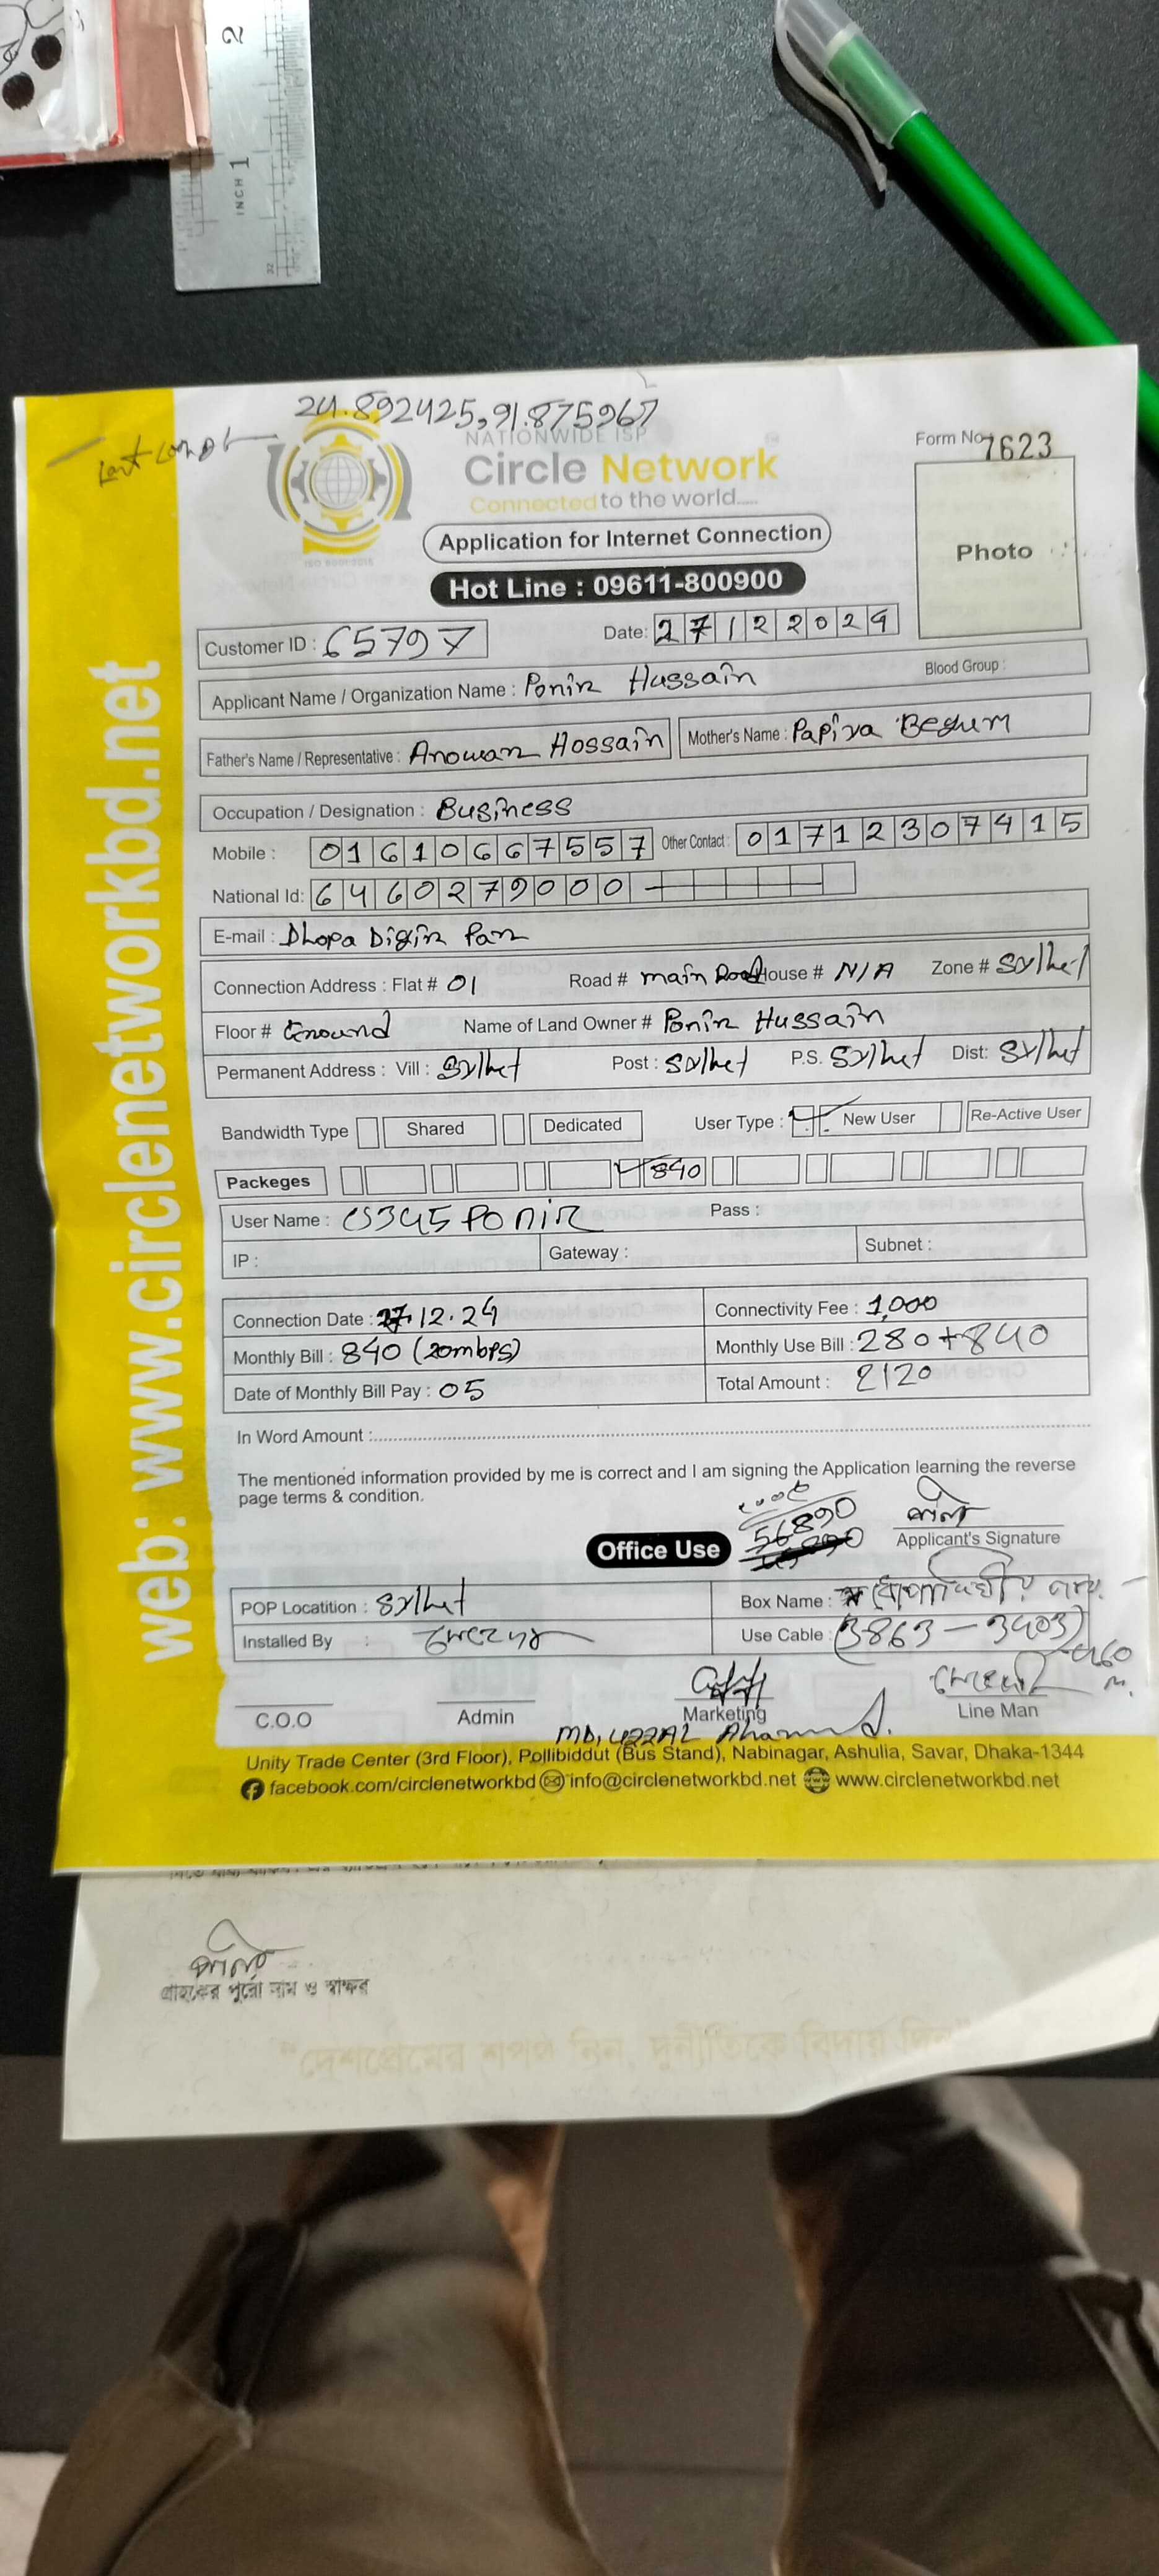 2
INCH 1
32
24.892425,91.875967
NATIONWIDE ISP
Circle Network
Connected to the world.....
ISO 9001:2015
Form No 7623
Photo
Application for Internet Connection
Hot Line : 09611-800900
Customer ID : 65797
Date: 27122024
Applicant Name / Organization Name : Ponir Hussain
Blood Group :
Father's Name / Representative : Anowar Hossain
Mother's Name : Papiya Begum
Occupation / Designation : Business
Mobile : 01610667557 Other Contact : 01712307415
National Id: 6460279000
E-mail : Dhopa Digir Par
Connection Address : Flat # 01 Road # main Road House # N/A Zone # Sylhet
Floor # Ground Name of Land Owner # Ponir Hussain
Permanent Address : Vill : Sylhet Post : Sylhet P.S. Sylhet Dist: Sylhet
Bandwidth Type Shared Dedicated User Type : New User Re-Active User
Packeges 840
User Name : CS345PONIR Pass :
IP : Gateway : Subnet :
Connection Date : 27.12.24 Connectivity Fee : 1,000
Monthly Bill : 840 (20mbps) Monthly Use Bill : 280+840
Date of Monthly Bill Pay : 05 Total Amount : 2120
In Word Amount :
The mentioned information provided by me is correct and I am signing the Application learning the reverse
page terms & condition.
56890
Office Use
Applicant's Signature
POP Locatition : Sylhet Box Name :
Installed By : Use Cable : (3863-3403)
C.O.O Admin Marketing Line Man
Unity Trade Center (3rd Floor), Pollibiddut (Bus Stand), Nabinagar, Ashulia, Savar, Dhaka-1344
facebook.com/circlenetworkbd info@circlenetworkbd.net www.circlenetworkbd.net
web: www.circlenetworkbd.net
গ্রাহকের পুরো নাম ও স্বাক্ষর
"দেশপ্রেমের শপথ নিন, দুর্নীতিকে বিদায় দিন"